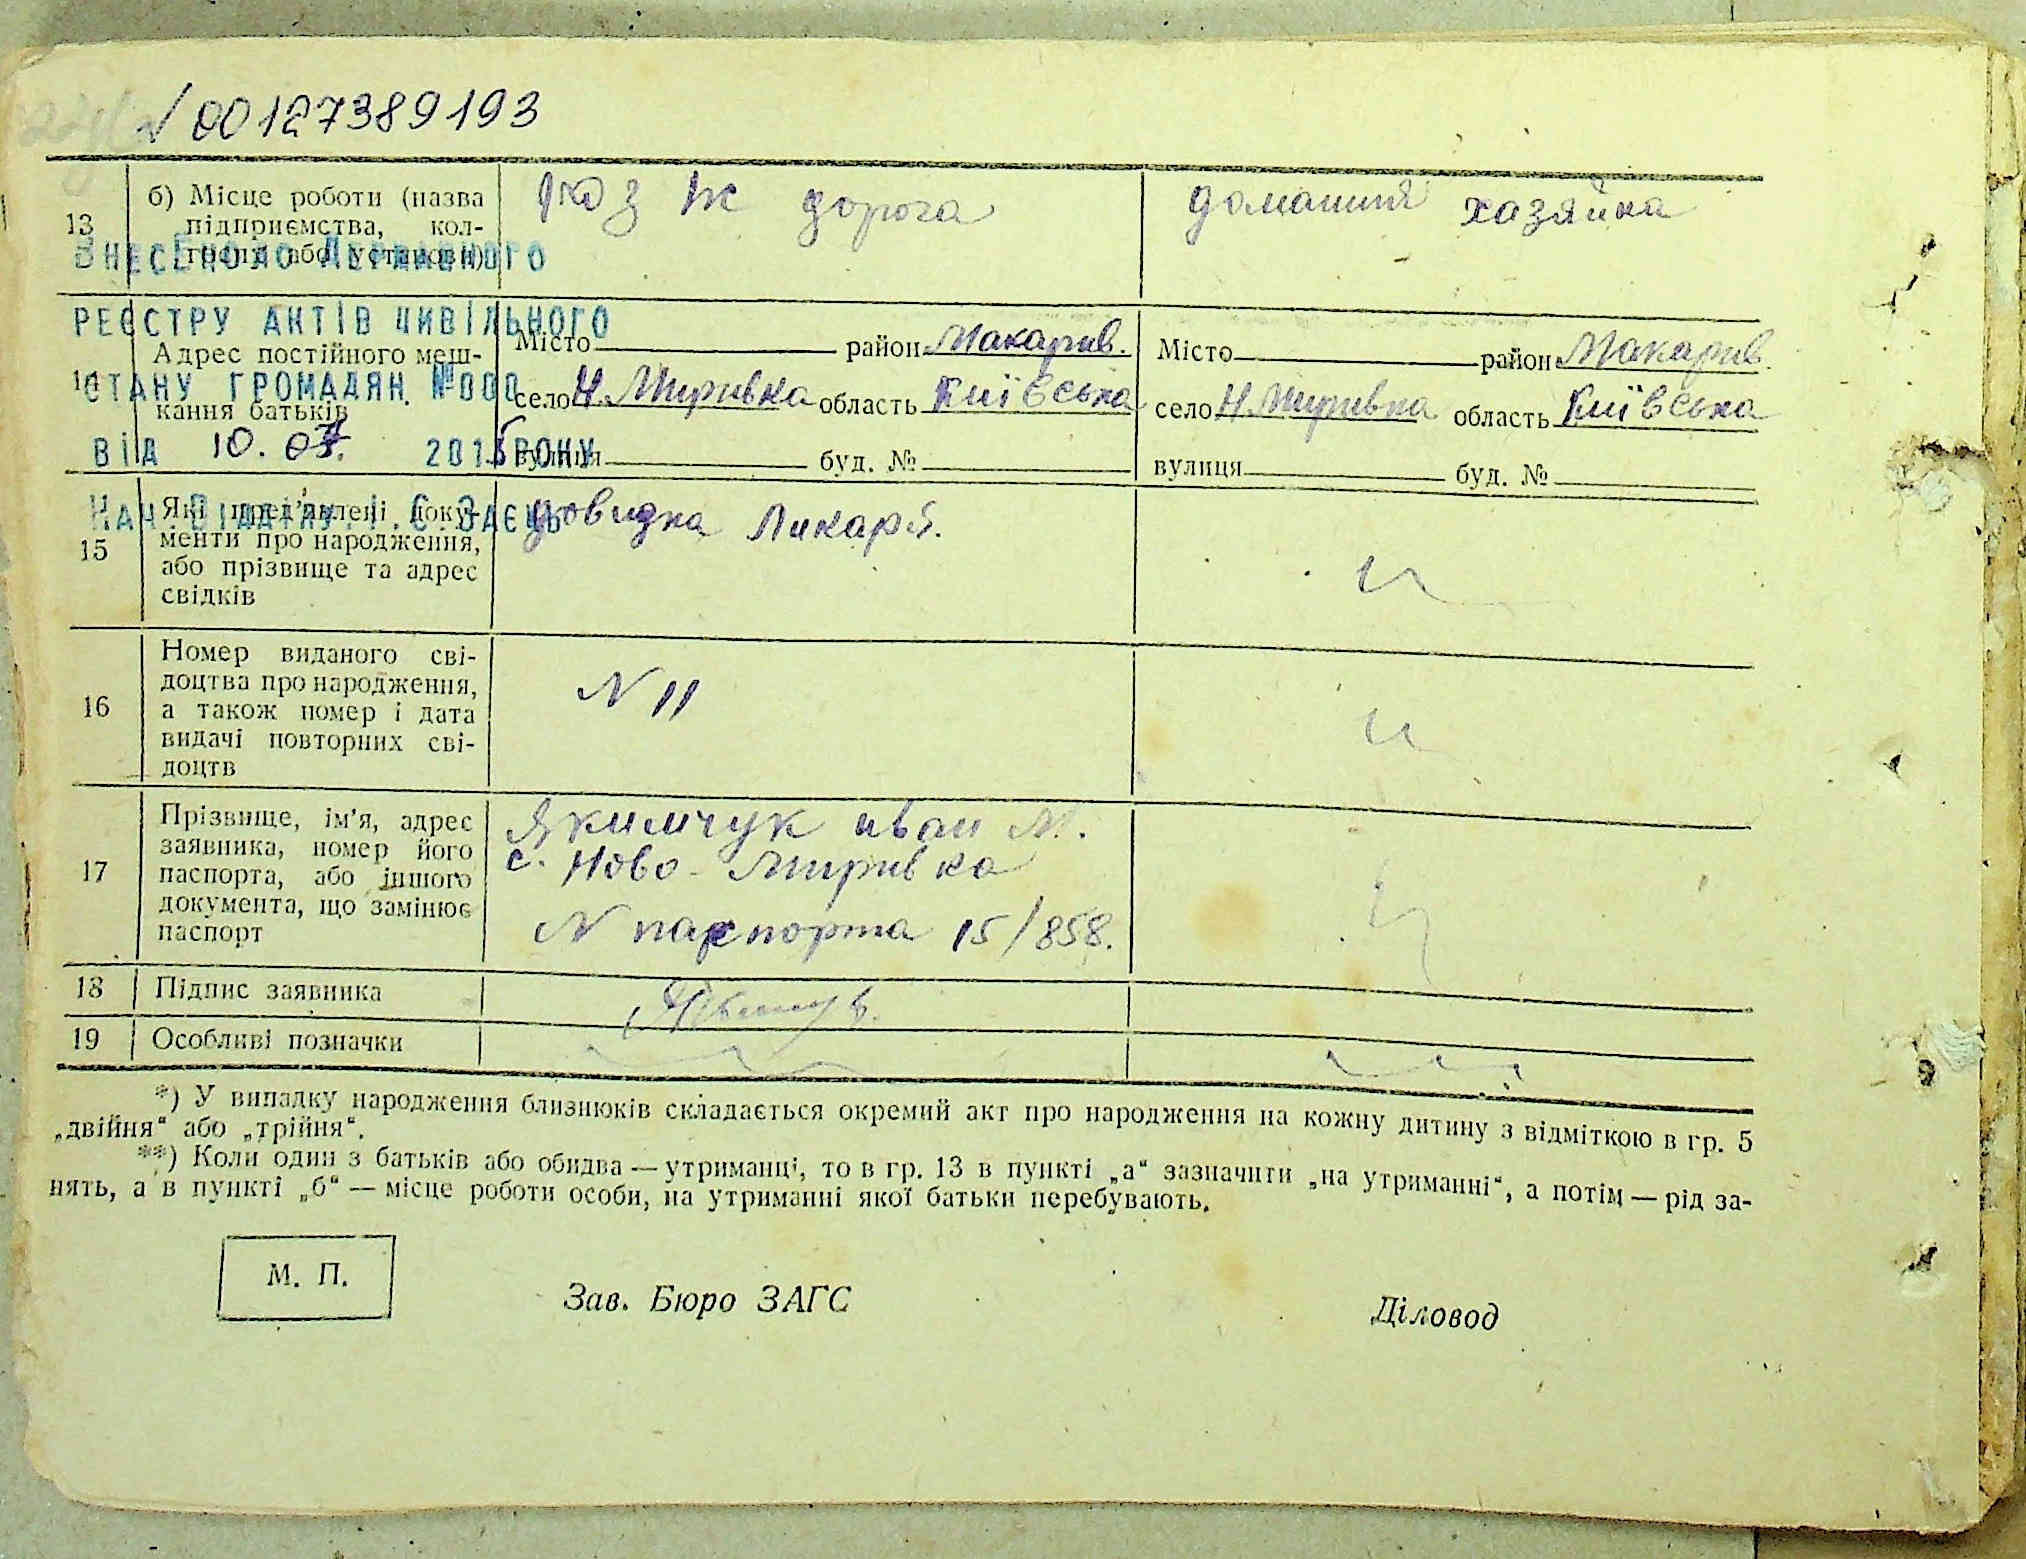 √ 00127389193
13 б) Місце роботи (назва підприємства, кол-
госпу або установи)
Ж дорога
домашня хазяйка
Внесено до Державного
реєстру актів цивільного
стану громадян. №000
від 10.07. 2015 року
Нач. відділу І.С. Заєць
14 Адрес постійного меш-
кання батьків
Місто район Макарів.
село Н. Мирівка область Київська
вулиця буд. №
Місто район Макарів.
село Н. Мирівка область Київська
вулиця буд. №
15 Які пред'явлені доку-
менти про народження,
або прізвище та адрес
свідків
довидка Ликаря.
16 Номер виданого сві-
доцтва про народження,
а також номер і дата
видачі повторних сві-
доцтв
N 11
17 Прізвище, ім'я, адрес
заявника, номер його
паспорта, або іншого
документа, що замінює
паспорт
Якимчук иван М.
с. Ново-Мирівка
N паспорта 15/858.
18 Підпис заявника
19 Особливі позначки
*) У випадку народження близнюків складається окремий акт про народження на кожну дитину з відміткою в гр. 5
„двійня“ або „трійня“.
**) Коли один з батьків або обидва — утриманці, то в гр. 13 в пункті „а“ зазначити „на утриманні“, а потім — рід за-
нять, а в пункті „б“ — місце роботи особи, на утриманні якої батьки перебувають.
М. П.
Зав. Бюро ЗАГС
Діловод